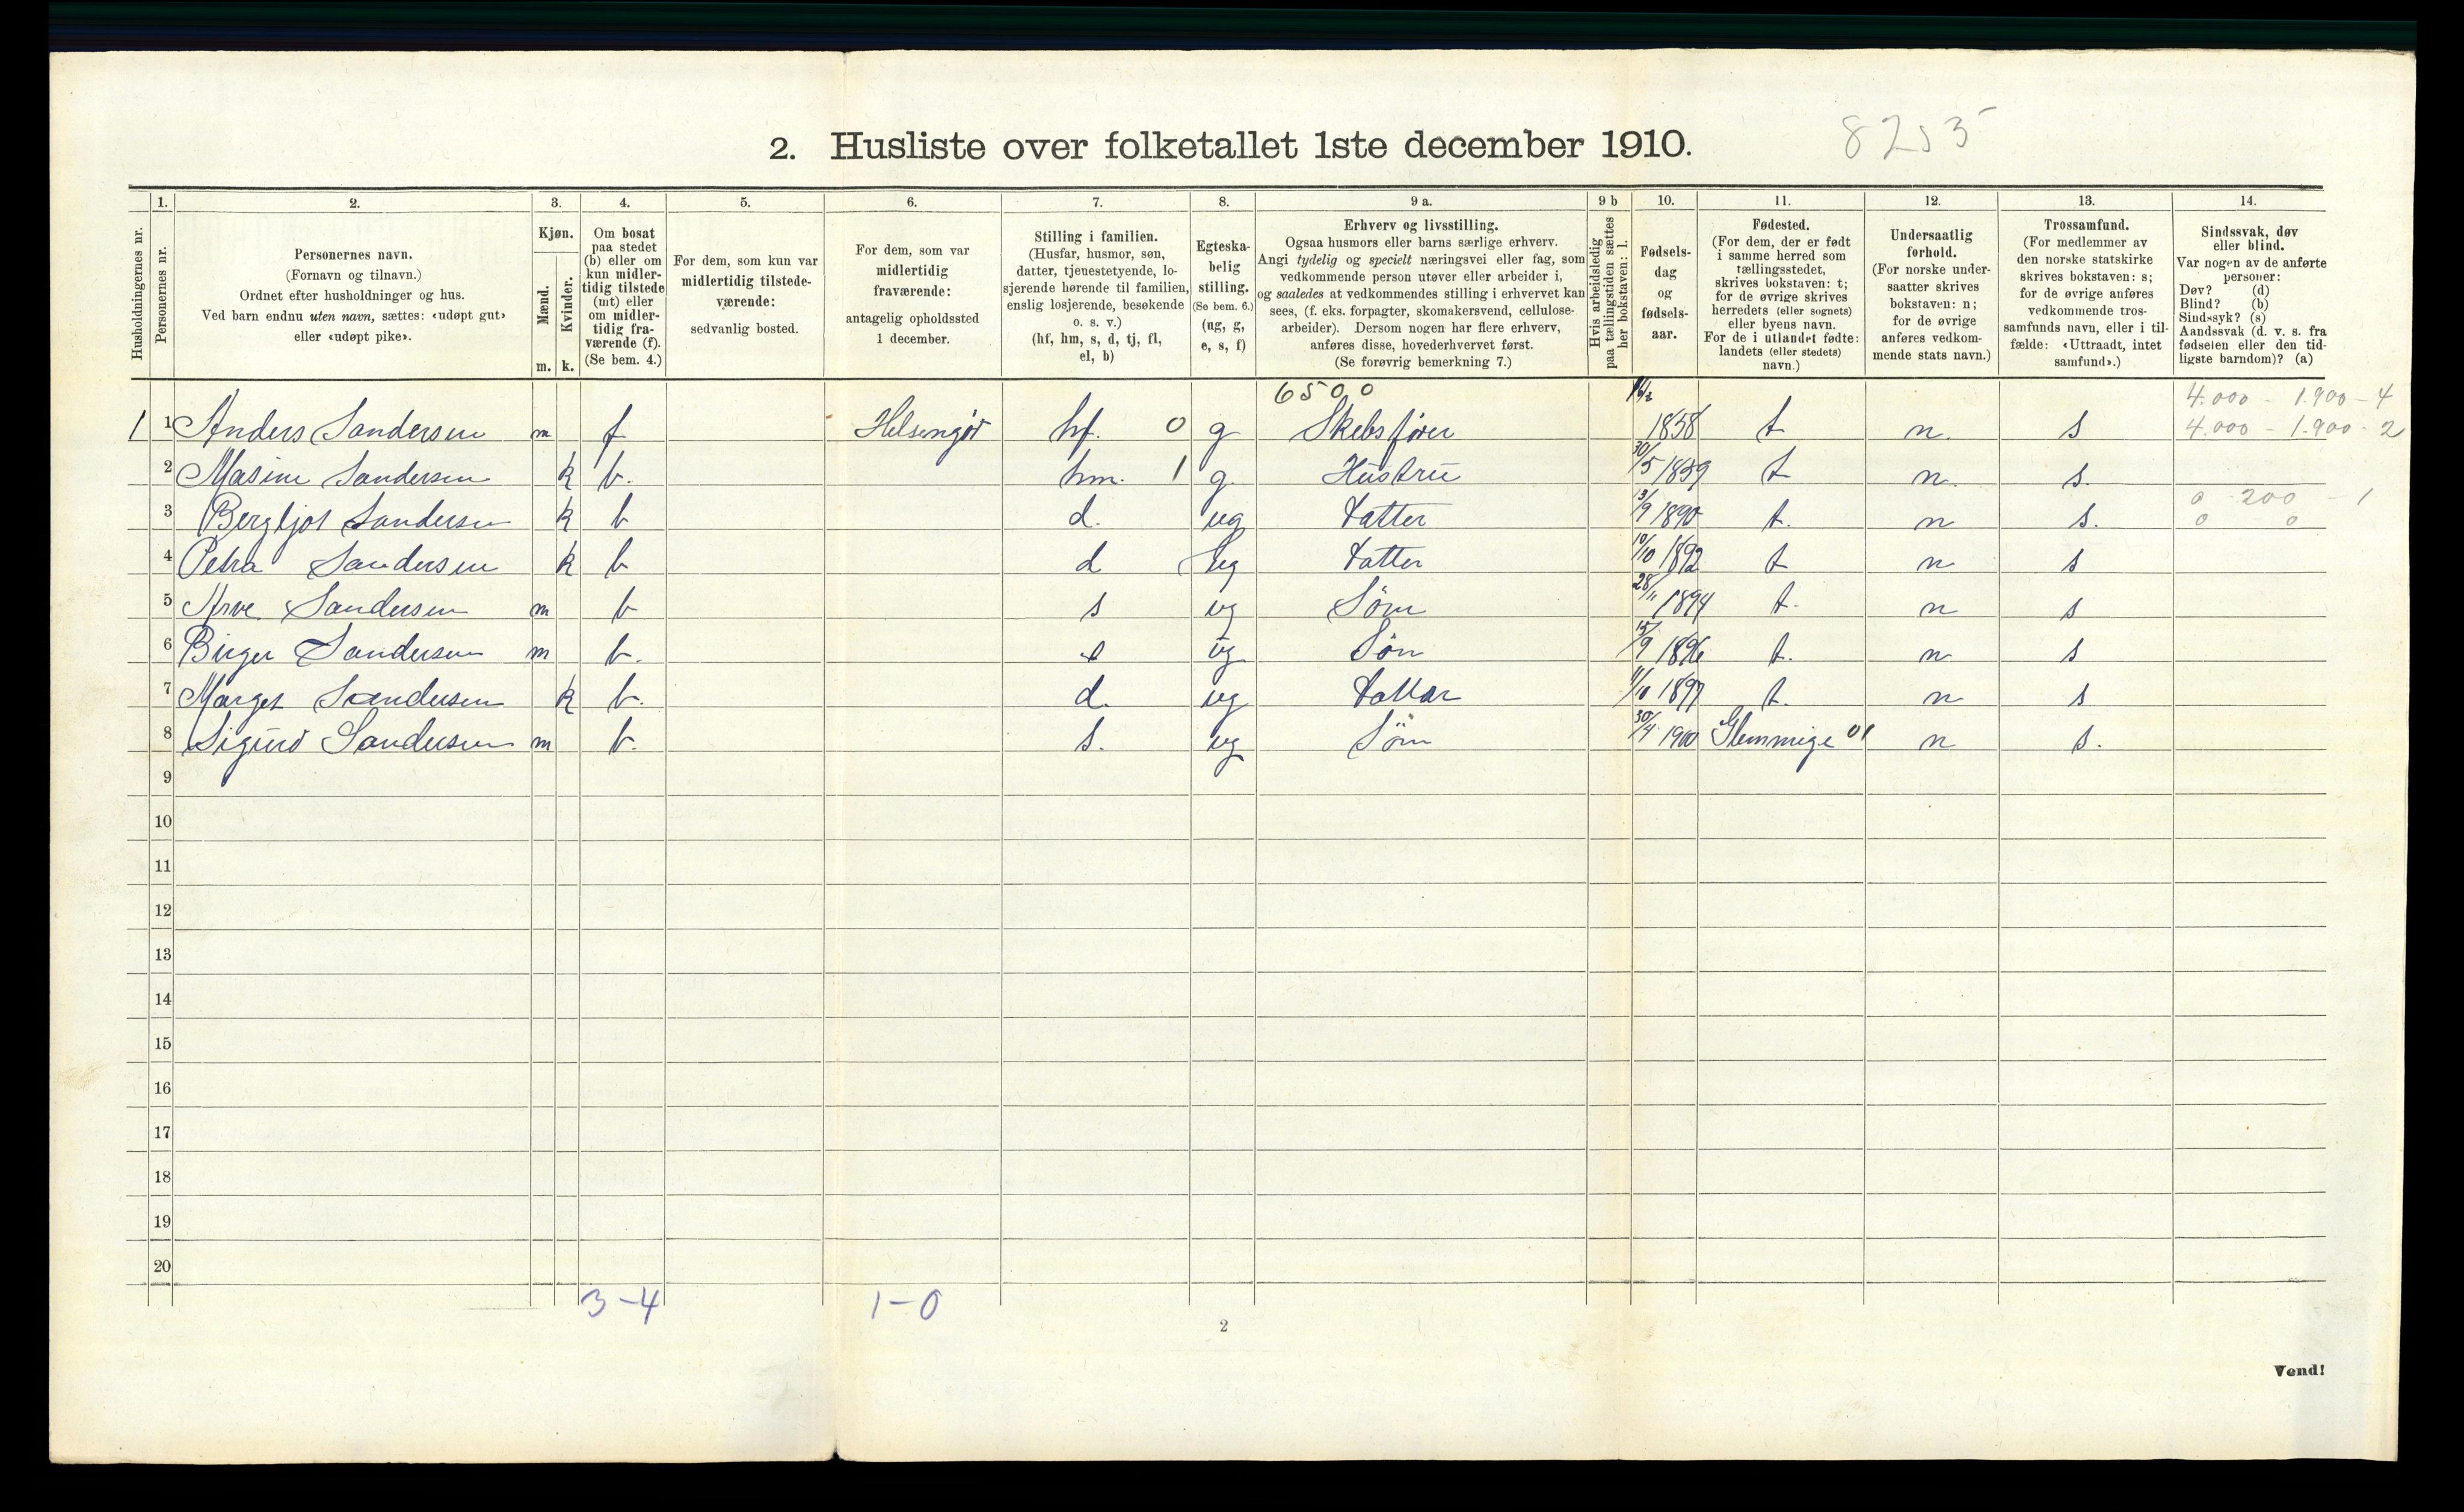 2. Husliste over folketallet 1ste december 1910.
8253
Husholdningernes nr.
1.
Personernes nr.
2.
Personernes navn.
(Fornavn og tilnavn.)
Ordnet efter husholdninger og hus.
Ved barn endnu uten navn, sættes: «udøpt gut»
eller «udøpt pike».
3.
Kjøn.
Mænd.
Kvinder.
m. k.
4.
Om bosat
paa stedet
(b) eller om
kun midler-
tidig tilstede
(mt) eller
om midler-
tidig fra-
værende (f).
(Se bem. 4.)
5.
For dem, som kun var
midlertidig tilstede-
værende:
sedvanlig bosted.
6.
For dem, som var
midlertidig
fraværende:
antagelig opholdssted
1 december.
7.
Stilling i familien.
(Husfar, husmor, søn,
datter, tjenestetyende, lo-
sjerende hørende til familien,
enslig losjerende, besøkende
o. s. v.)
(hf, hm, s, d, tj, fl,
el, b)
8.
Egteska-
belig
stilling.
(Se bem. 6.)
(ug, g,
e, s, f)
9 a.
Erhverv og livsstilling.
Ogsaa husmors eller barns særlige erhverv.
Angi tydelig og specielt næringsvei eller fag, som
vedkommende person utøver eller arbeider i,
og saaledes at vedkommendes stilling i erhvervet kan
sees, (f. eks. forpagter, skomakersvend, cellulose-
arbeider). Dersom nogen har flere erhverv,
anføres disse, hovederhvervet først.
(Se forøvrig bemerkning 7.)
9 b
Hvis arbeidsledig
paa tællingstiden sættes
her bokstaven: l.
10.
Fødsels-
dag
og
fødsels-
aar.
11.
Fødested.
(For dem, der er født
i samme herred som
tællingsstedet,
skrives bokstaven: t;
for de øvrige skrives
herredets (eller sognets)
eller byens navn.
For de i utlandet fødte:
landets (eller stedets)
navn.)
12.
Undersaatlig
forhold.
(For norske under-
saatter skrives
bokstaven: n;
for de øvrige
anføres vedkom-
mende stats navn.)
13.
Trossamfund.
(For medlemmer av
den norske statskirke
skrives bokstaven: s;
for de øvrige anføres
vedkommende tros-
samfunds navn, eller i til-
fælde: «Uttraadt, intet
samfund».)
14.
Sindssvak, døv
eller blind.
Var nogen av de anførte
personer:
Døv? (d)
Blind? (b)
Sindssyk? (s)
Aandssvak (d. v. s. fra
fødselen eller den tid-
ligste barndom)? (a)
6500 4.000 - 1.900 - 4
1 1 Anders Sandersen m f Helsengør hf. 0 g Skebsfører 1858 t n. s 4.000 - 1.900 - 2
2 Masine Sandersen k b. hm. 1 g. Hustru 30/5 1859 t n. s.
0 200 - 1
3 Bergljot Sandersen k b d. ug Datter 13/9 1890 t. n s. 0 0
4 Petra Sandersen k b d ug Datter 10/10 1892 t n s
5 Arve Sandersen m b s ug Søn 28/11 1894 t. n s
6 Birger Sandersen m b. s ug Søn 15/9 1896 t. n s
7 Marget Sandersen k b. d. ug Datter 11/10 1897 t. n s
8 Sigurd Sandersen m b. s. ug Søn 30/4 1900 Glemmige 01 n s.
9
10
11
12
13
14
15
16
17
18
19
20
3-4 1-0
2
Vend!